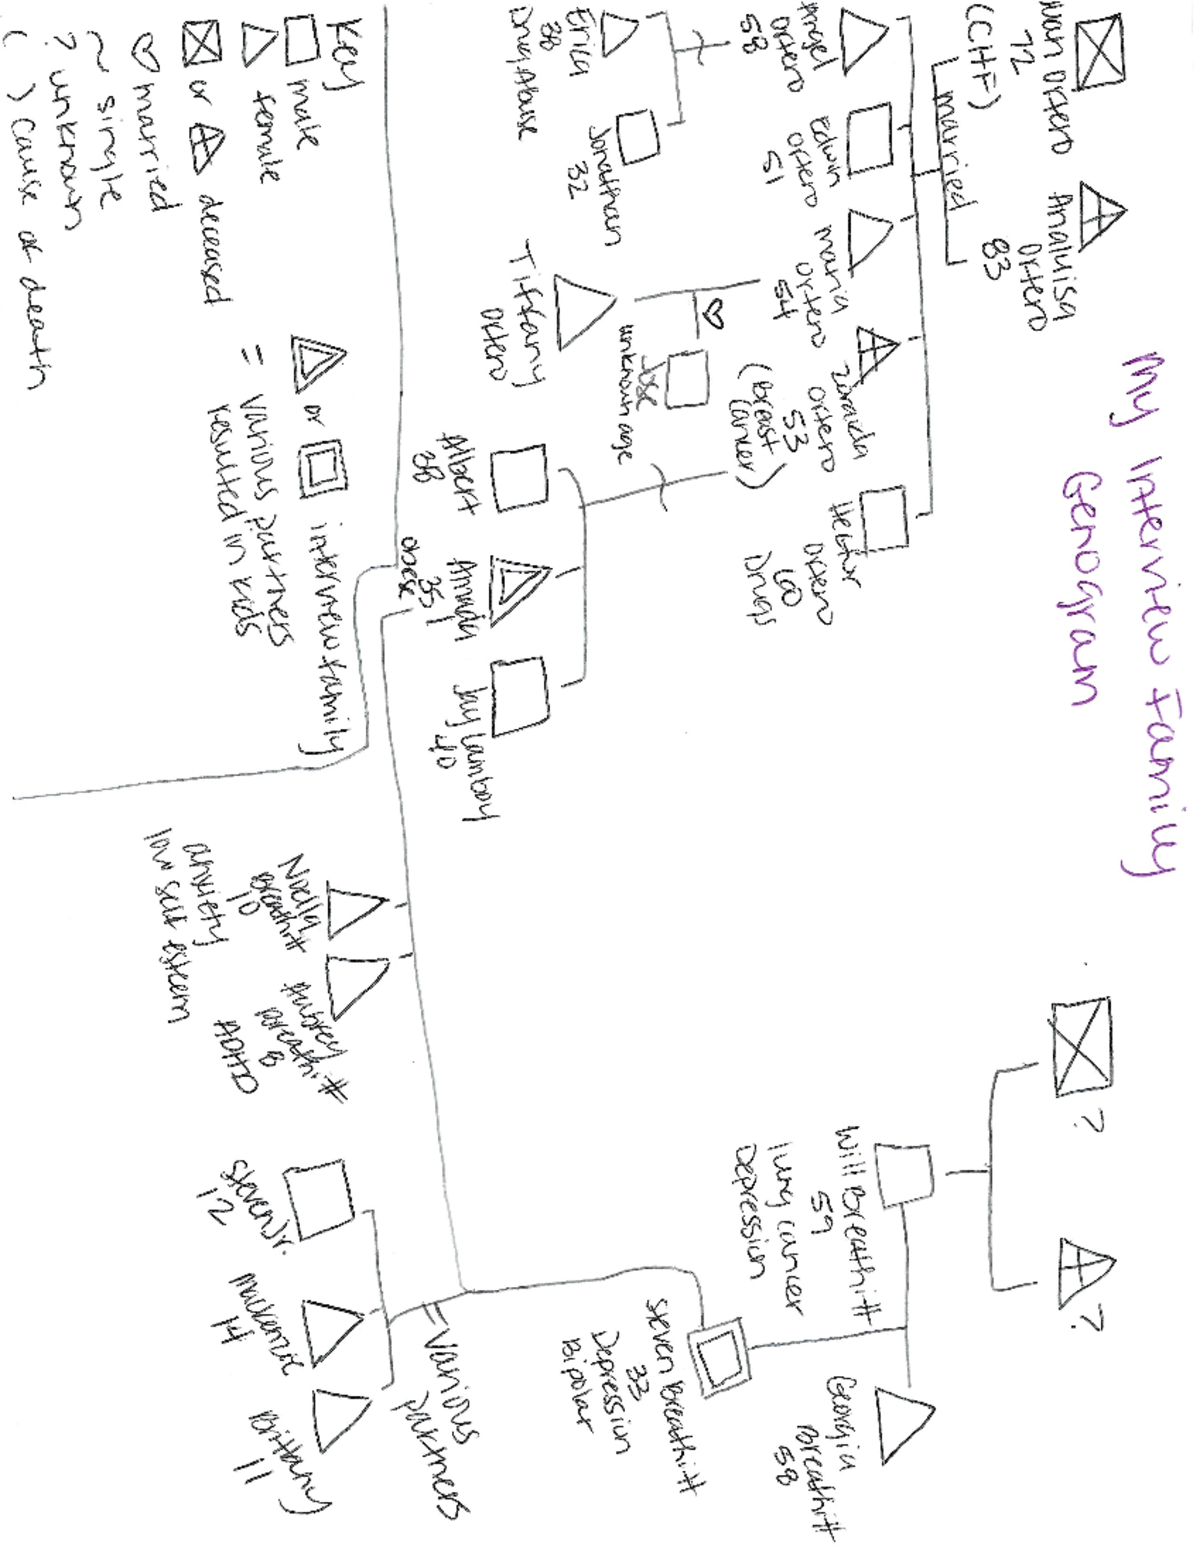 My Interview Family
Genogram
Ortero
72
(CHF)
Analuisa
Ortero
83
married
?
?
Angel
Ortero
58
Edwin
Ortero
51
Maria
Ortero
54
Zoraida
Ortero
53
(Breast
Cancer)
Hector
Ortero
60
Drugs
Will Breathitt
59
lung cancer
Depression
Georgia
Breathitt
58
Erica
38
Drug Abuse
Jonathan
32
♡
Jose
unknown age
Tiffany
Ortero
Steven Breathitt
33
Depression
Bipolar
Albert
38
Amanda
35
obese
Jay Lamboy
40
= various
partners
Noella
Breathitt
10
anxiety
low self esteem
Aubrey
Breathitt
8
ADHD
Steven Jr.
12
Mackenzie
14
Brittany
11
Key
male
female
or deceased
♡ married
~ single
? unknown
( ) cause of death
or interview family
= various partners
resulted in kids